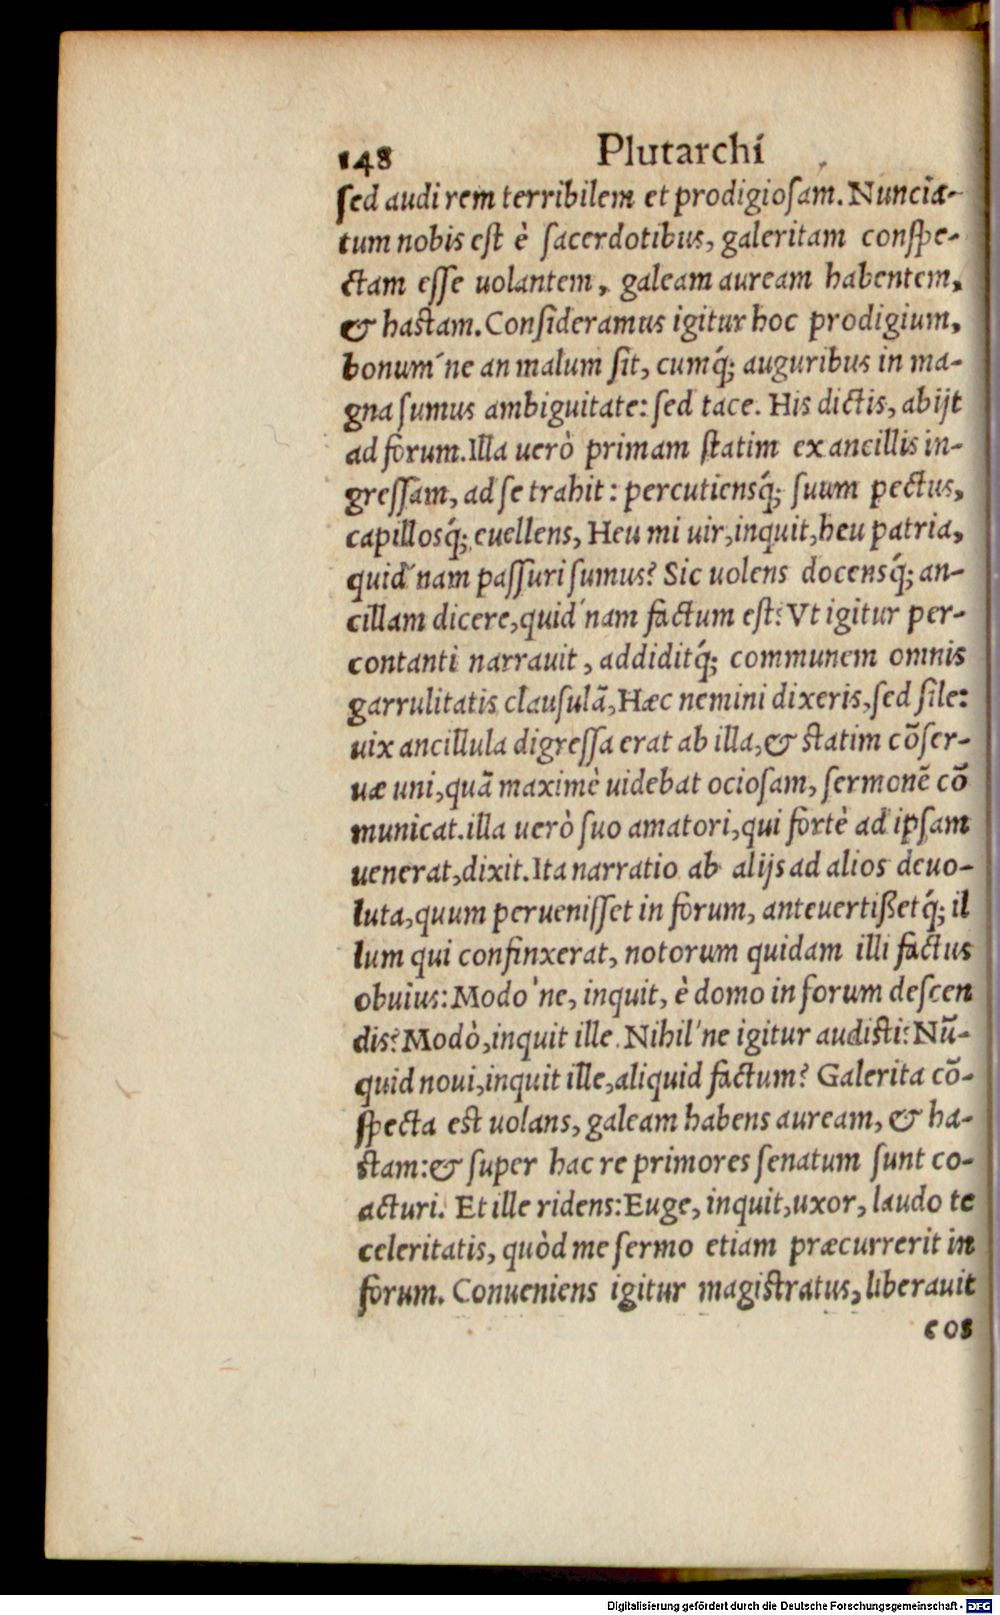 148 Plutarchi
ſed audi rem terribilem et prodigioſam. Nuncia-
tum nobis eſt è ſacerdotibus, galeritam conſpe-
ctam eſſe uolantem, galeam auream habentem,
& haſtam. Conſideramus igitur hoc prodigium,
bonum´ne an malum ſit, cumq́; auguribus in ma-
gna ſumus ambiguitate: ſed tace. His dictis, abijt
ad forum. Illa uerò primam ſtatim ex ancillis in-
greſſam, ad ſe trahit: percutiensq́; ſuum pectus,
capillosq́; euellens, Heu mi uir, inquit, heu patria,
quid´nam paſſuri ſumus? Sic uolens docensq́; an-
cillam dicere, quid´nam factum eſt? Vt igitur per-
contanti narrauit, addiditq́; communem omnis
garrulitatis clauſulã, Hæc nemini dixeris, ſed ſile:
uix ancillula digreſſa erat ab illa, & ſtatim cõſer-
uæ uni, quã maximè uidebat ocioſam, ſermonẽ cõ
municat. illa uerò ſuo amatori, qui fortè ad ipſam
uenerat, dixit. Ita narratio ab alijs ad alios deuo-
luta, quum perueniſſet in forum, anteuertißetq́; il
lum qui confinxerat, notorum quidam illi factus
obuius: Modo´ne, inquit, è domo in forum deſcen
dis? Modò, inquit ille. Nihil´ne igitur audiſti? Nũ-
quid noui, inquit ille, aliquid factum? Galerita cõ-
ſpecta eſt uolans, galeam habens auream, & ha-
ſtam: & ſuper hac re primores ſenatum ſunt co-
acturi. Et ille ridens: Euge, inquit, uxor, laudo te
celeritatis, quòd me ſermo etiam præcurrerit in
forum. Conueniens igitur magiſtratus, liberauit
eos
Digitalisierung gefördert durch die Deutsche Forschungsgemeinschaft - DFG